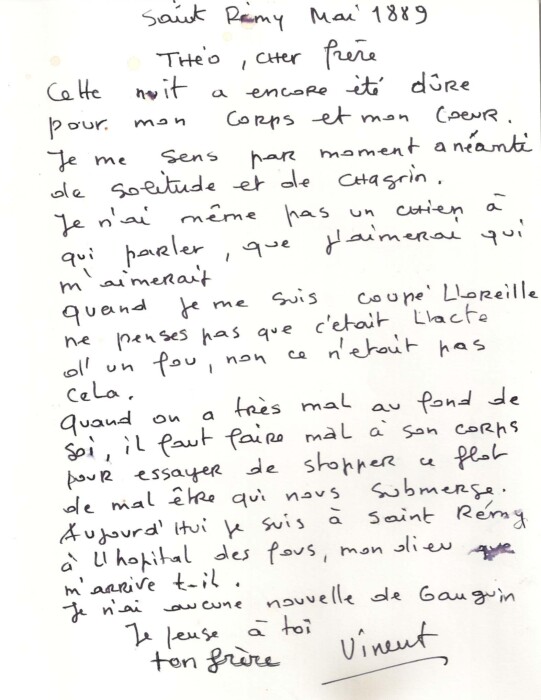 Saint Rémy Mai 1889
Théo, cher frère
Cette nuit a encore été dûre
pour mon corps et mon coeur.
Je me sens par moment anéanti
de solitude et de chagrin.
Je n'ai même pas un chien à
qui parler, que j'aimerai qui
m'aimerait
quand je me suis coupé L'oreille
ne penses pas que c'était L'acte
d'un fou, non ce n'etait pas
cela.
quand on a très mal au fond de
soi, il faut faire mal à son corps
pour essayer de stopper ce flot
de mal être qui nous submerge.
Aujourd'hui je suis à Saint Rémy
à L'hopital des fous, mon dieu que
m'arrive t-il.
Je n'ai aucune nouvelle de Gauguin
Je pense à toi
ton frère Vincent